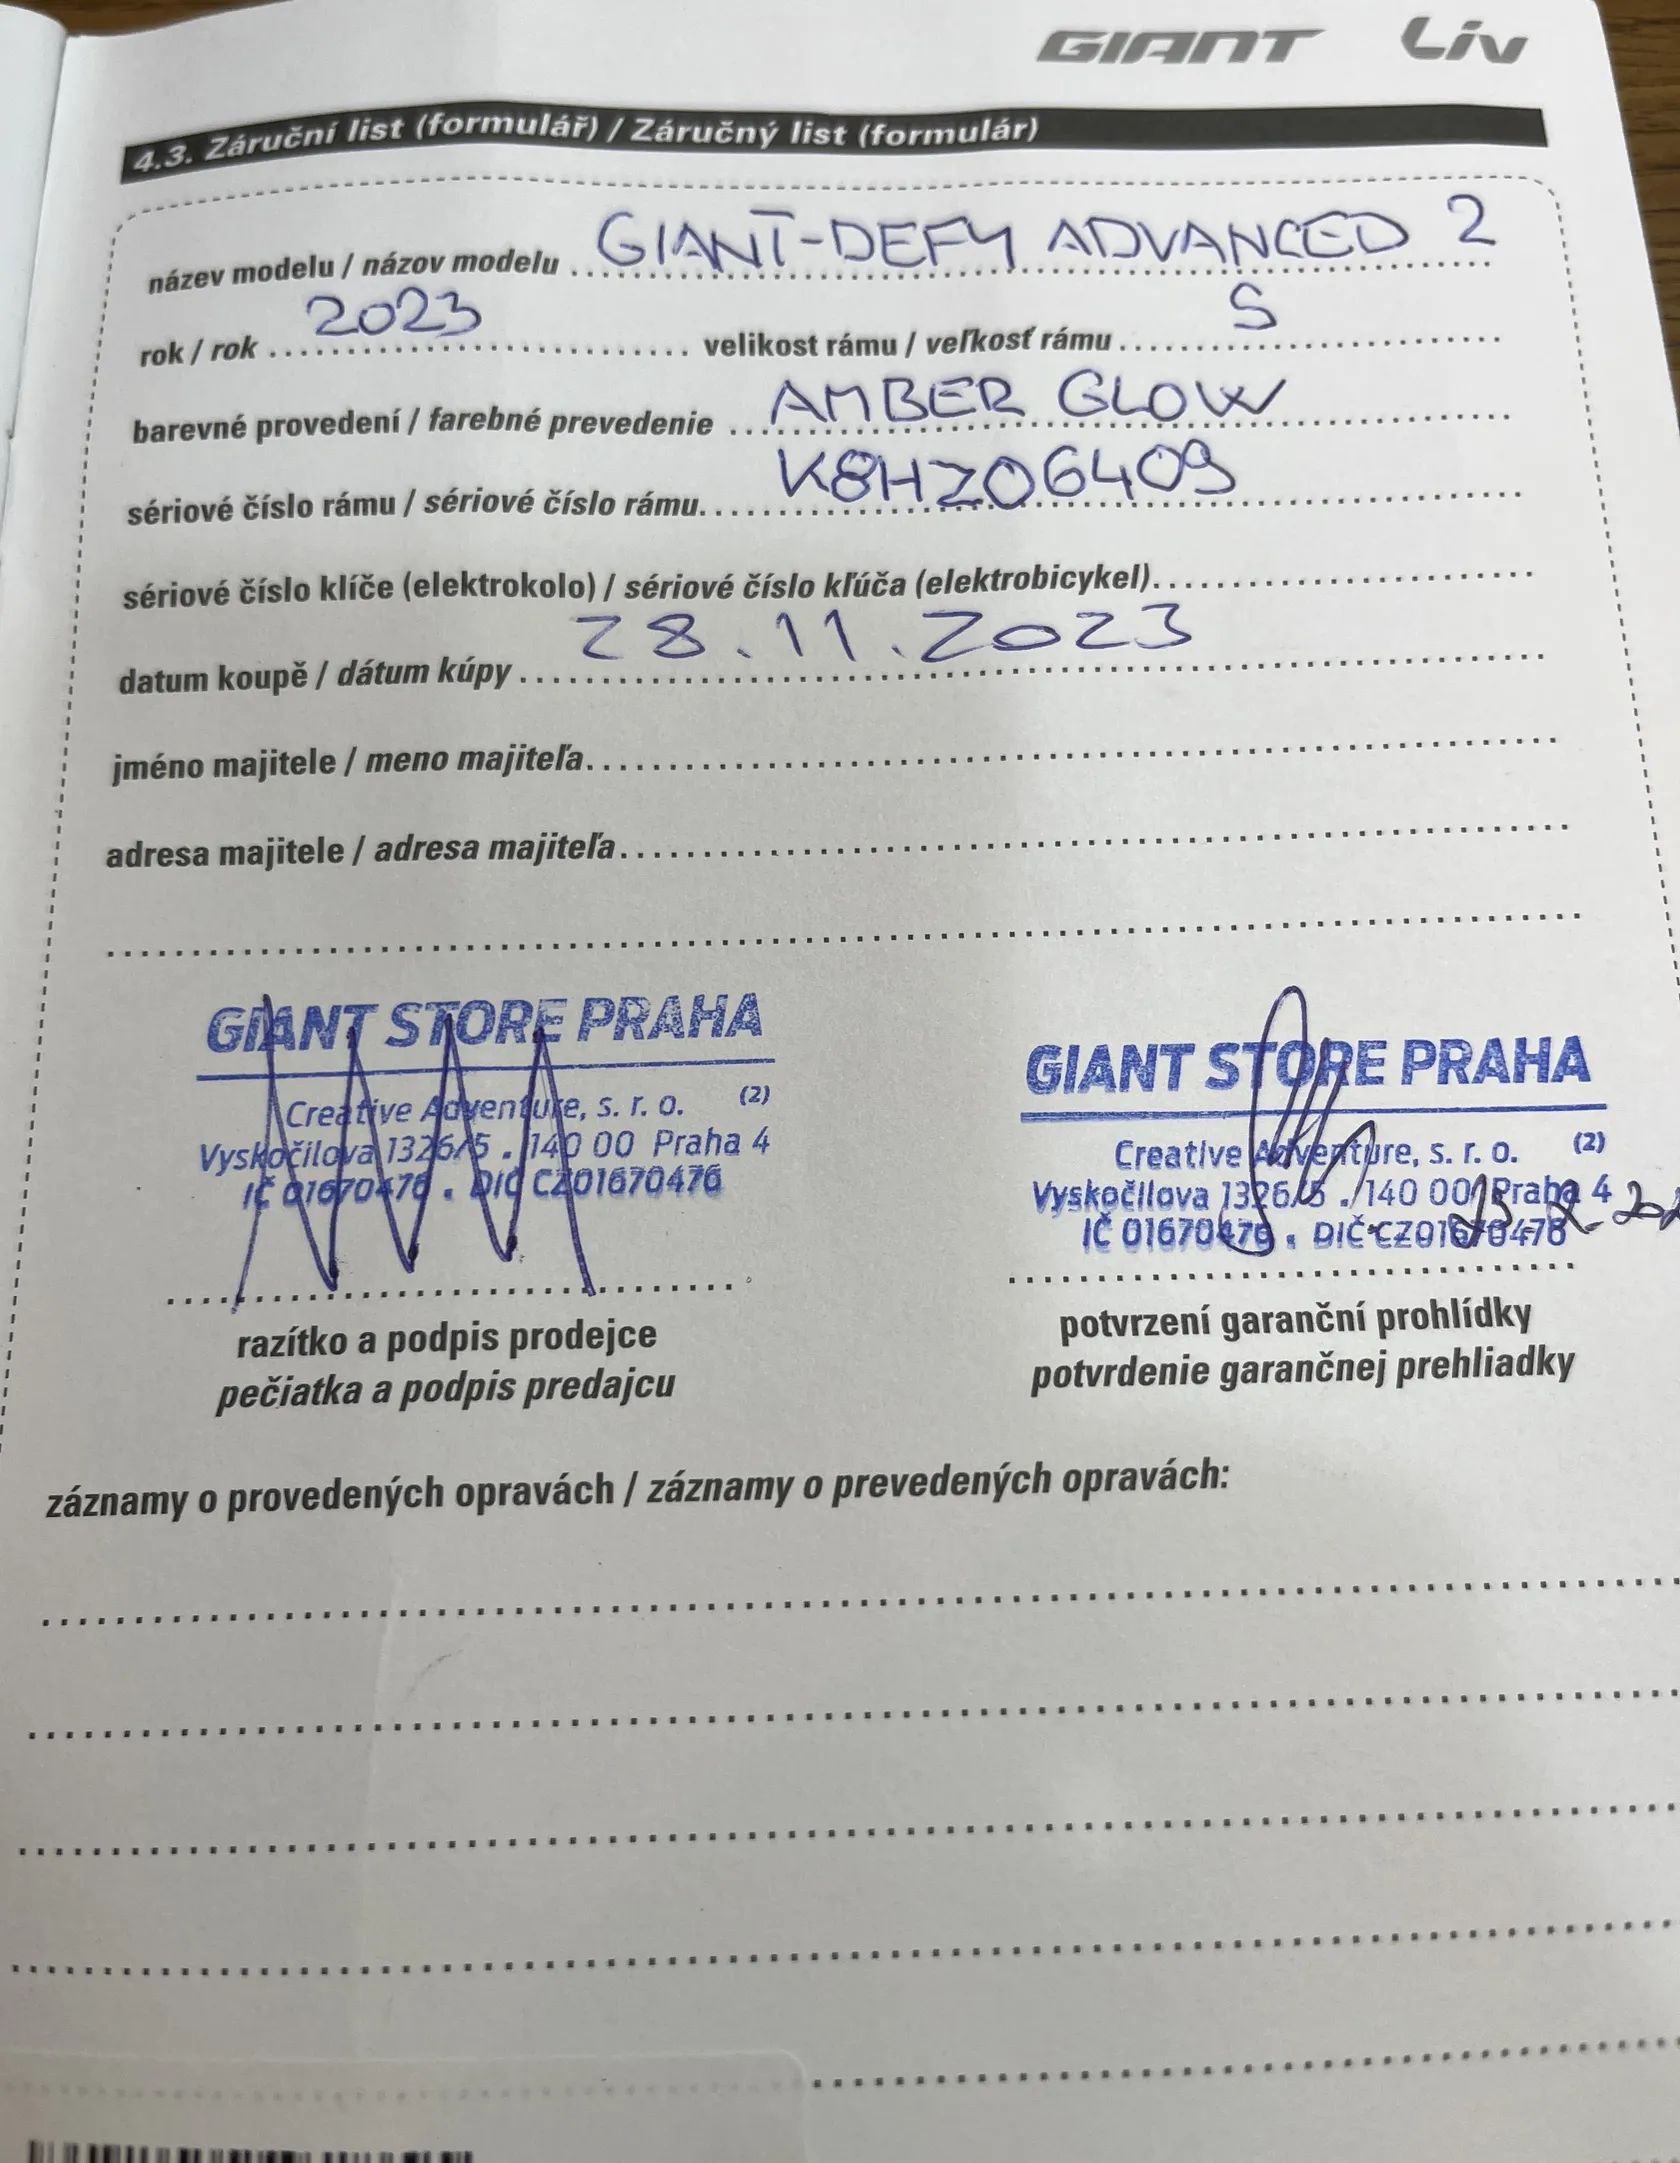 GIANT Liv
4.3. Záruční list (formulář) / Záručný list (formulár)
název modelu / názov modelu GIANT-DEFY ADVANCED 2
rok / rok 2023 velikost rámu / veľkosť rámu S
barevné provedení / farebné prevedenie AMBER GLOW
sériové číslo rámu / sériové číslo rámu K8HZ06409
sériové číslo klíče (elektrokolo) / sériové číslo kľúča (elektrobicykel)
datum koupě / dátum kúpy 28.11.2023
jméno majitele / meno majiteľa
adresa majitele / adresa majiteľa
GIANT STORE PRAHA
Creative Adventure, s. r. o. (2)
Vyskočilova 1326/5 . 140 00 Praha 4
IČ 01670476 . DIČ CZ01670476
razítko a podpis prodejce
pečiatka a podpis predajcu
GIANT STORE PRAHA
Creative Adventure, s. r. o. (2)
Vyskočilova 1326/5 . 140 00 Praha 4
IČ 01670476 . DIČ CZ01670476
potvrzení garanční prohlídky
potvrdenie garančnej prehliadky
záznamy o provedených opravách / záznamy o prevedených opravách: